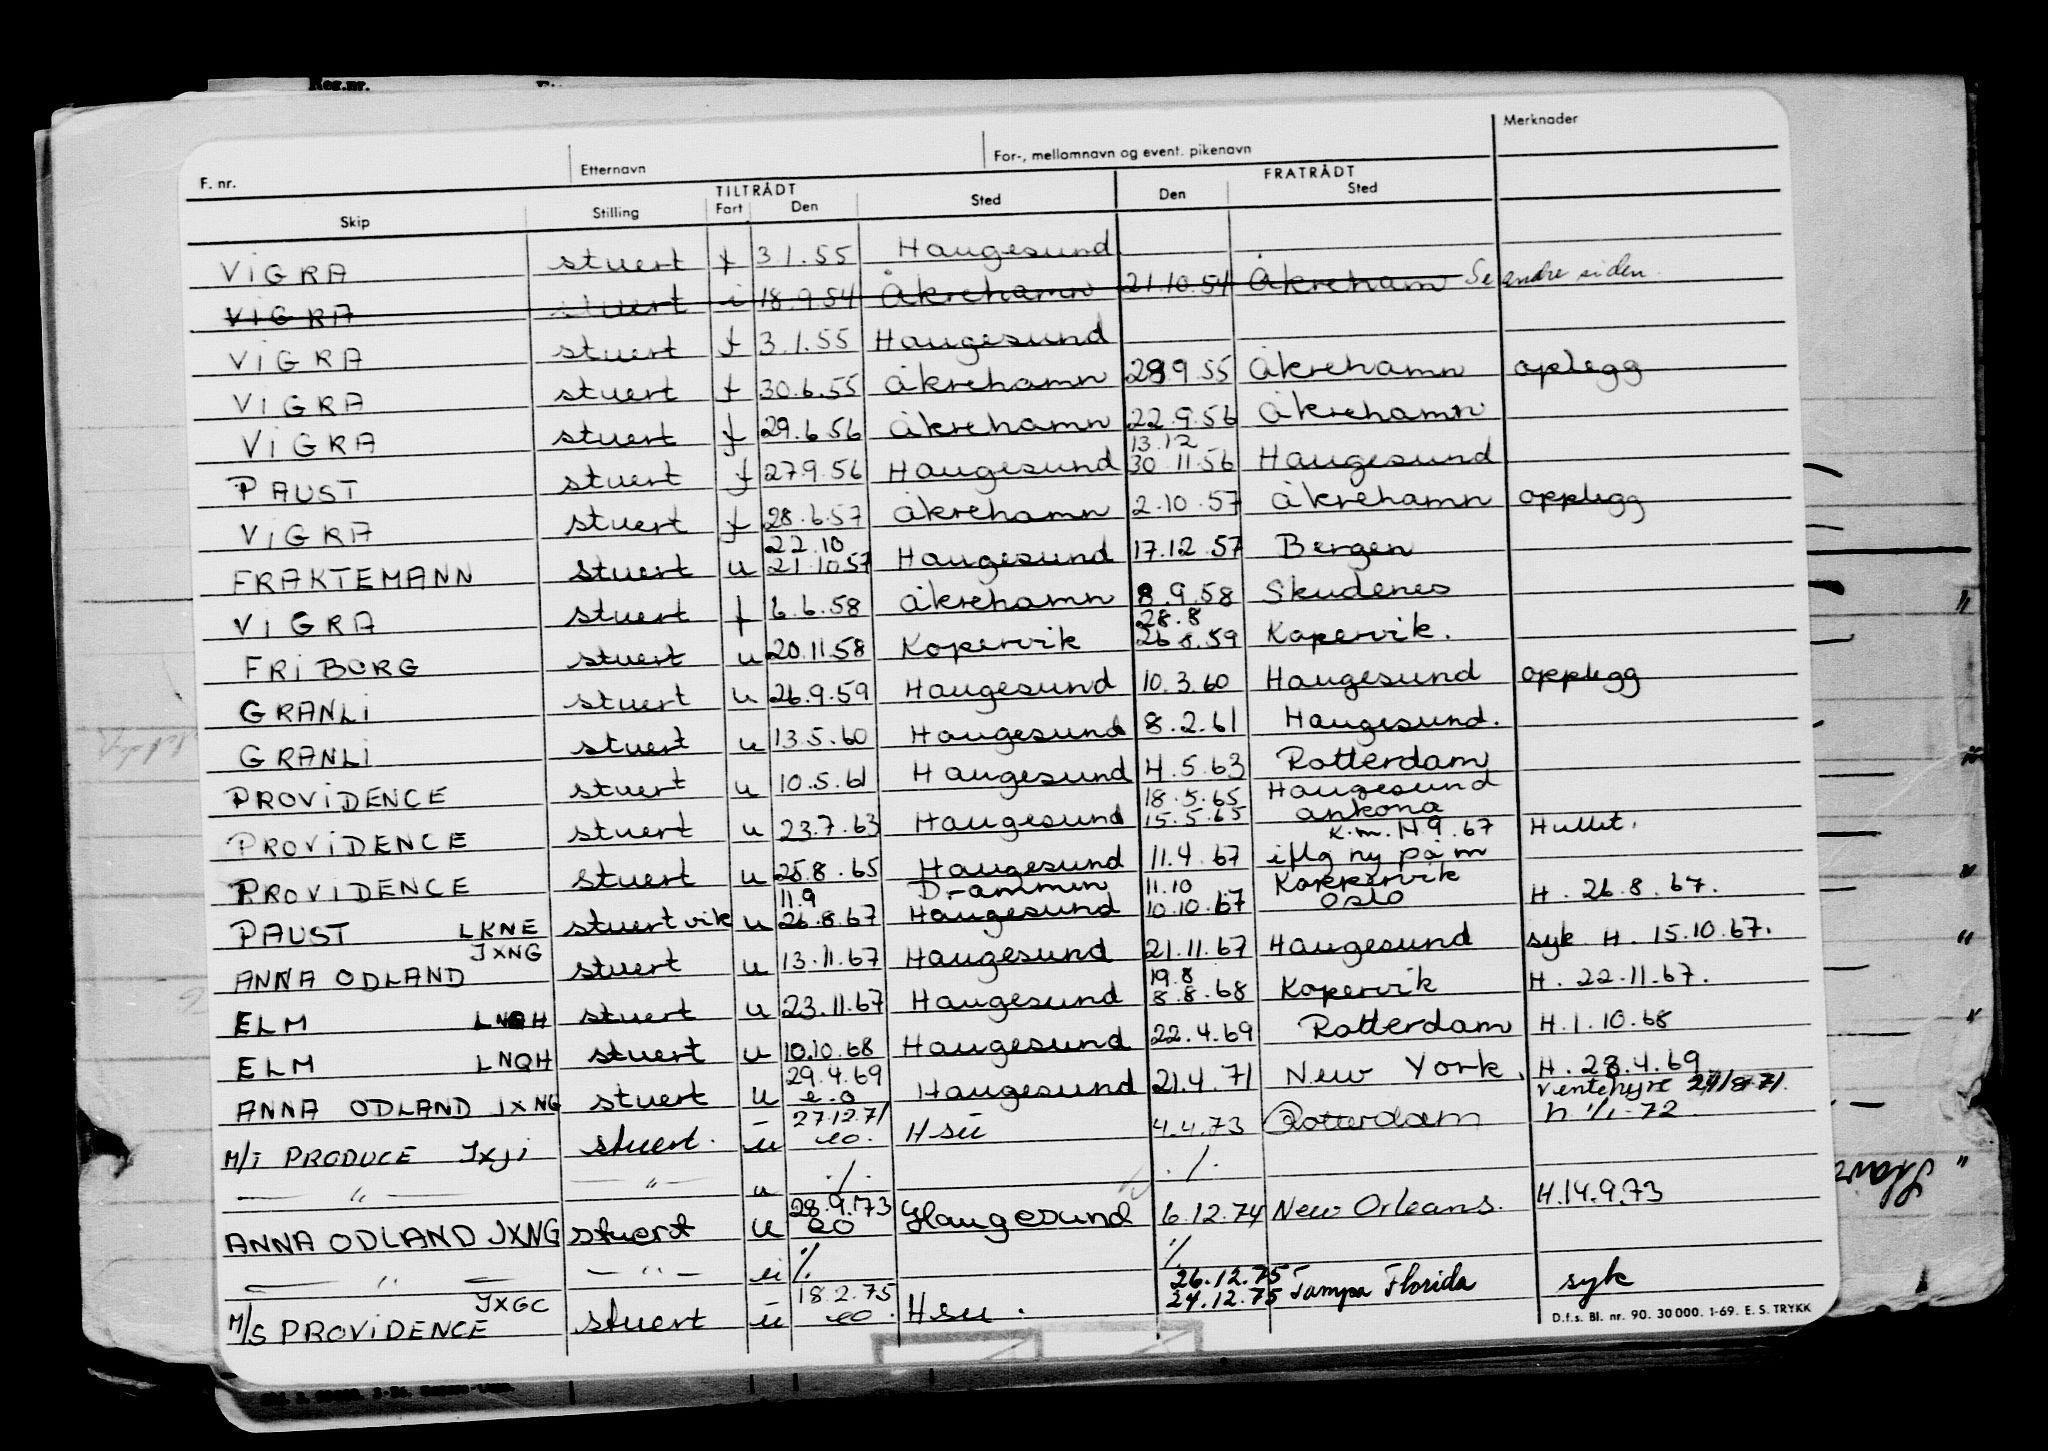 Reg.nr.
F. nr. Etternavn For-, mellomnavn og event. pikenavn Merknader
TILTRÅDT FRATRÅDT
Skip Stilling Fart Den Sted Den Sted
ViGRA stuert f 3.1.55 Haugesund
ViGRA stuert i 18.9.54 Åkrehamn 21.10.54 Åkreham Se andre siden.
ViGRA stuert f 3.1.55 Haugesund
ViGRA stuert f 30.6.55 Åkrehamn 28.9.55 Åkrehamn oplegg
ViGRA stuert f 29.6.56 Åkrehamn 22.9.56 Åkrehamn
13.12
PAUST stuert f 27.9.56 Haugesund 30.11.56 Haugesund
ViGRA stuert f 28.6.57 Åkrehamn 2.10.57 Åkrehamn opplegg
22.10
FRAKTEMANN stuert u 21.10.57 Haugesund 17.12.57 Bergen
ViGRA stuert f 6.6.58 Åkrehamn 8.9.58 Skudenes
28.8
FRiBORG stuert u 20.11.58 Kopervik 26.8.59 Kopervik.
GRANLi stuert u 26.9.59 Haugesund 10.3.60 Haugesund opplegg
GRANLi stuert u 13.5.60 Haugesund 8.2.61 Haugesund.
PROViDENCE stuert u 10.5.61 Haugesund 4.5.63 Rotterdam
18.5.65 Haugesund
PROViDENCE stuert u 23.7.63 Haugesund 15.5.65 ankona
K.m. H 9.67 Hullet.
PROViDENCE stuert u 25.8.65 Haugesund 11.4.67 iflg ny på m
11.9 Drammen 11.10 Koppervik
PAUST LKNE stuert vik u 26.8.67 Haugesund 10.10.67 Oslo H. 26.8.67.
JXNG
ANNA ODLAND stuert u 13.11.67 Haugesund 21.11.67 Haugesund syk H. 15.10.67.
19.8
ELM LNQH stuert u 23.11.67 Haugesund 8.8.68 Kopervik H. 22.11.67.
ELM LNQH stuert u 10.10.68 Haugesund 22.4.69 Rotterdam H.1.10.68
29.4.69
ANNA ODLAND JXNG stuert u e.o Haugesund 21.4.71 New York. H. 28.4.69
ventehyre 24/8-71.
27.12.71
M/T PRODUCE JXJi stuert. u eo. Hsu 4.4.73 Rotterdam h 1/1-72.
— " — — " — u ./. ./.
28.9.73
ANNA ODLAND JXNG stuert u eo Haugesund 6.12.74 New Orleans. H.14.9.73
— " — — " — u ./. ./.
18.2.75 26.12.75
JXGC
M/S PROViDENCE stuert u eo. Hsu. 24.12.75 Tampa Florida syk
D.f.s. Bl. nr. 90. 30 000. 1-69. E. S. TRYKK